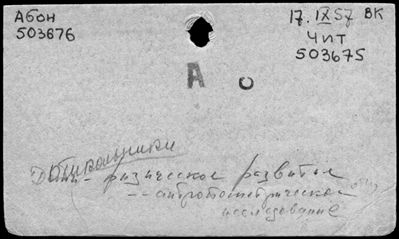 Абон
503676
17. IX 57 ВК
Чит
503675
А
школьники
физическое развитие
-- антропометрическое
исследование